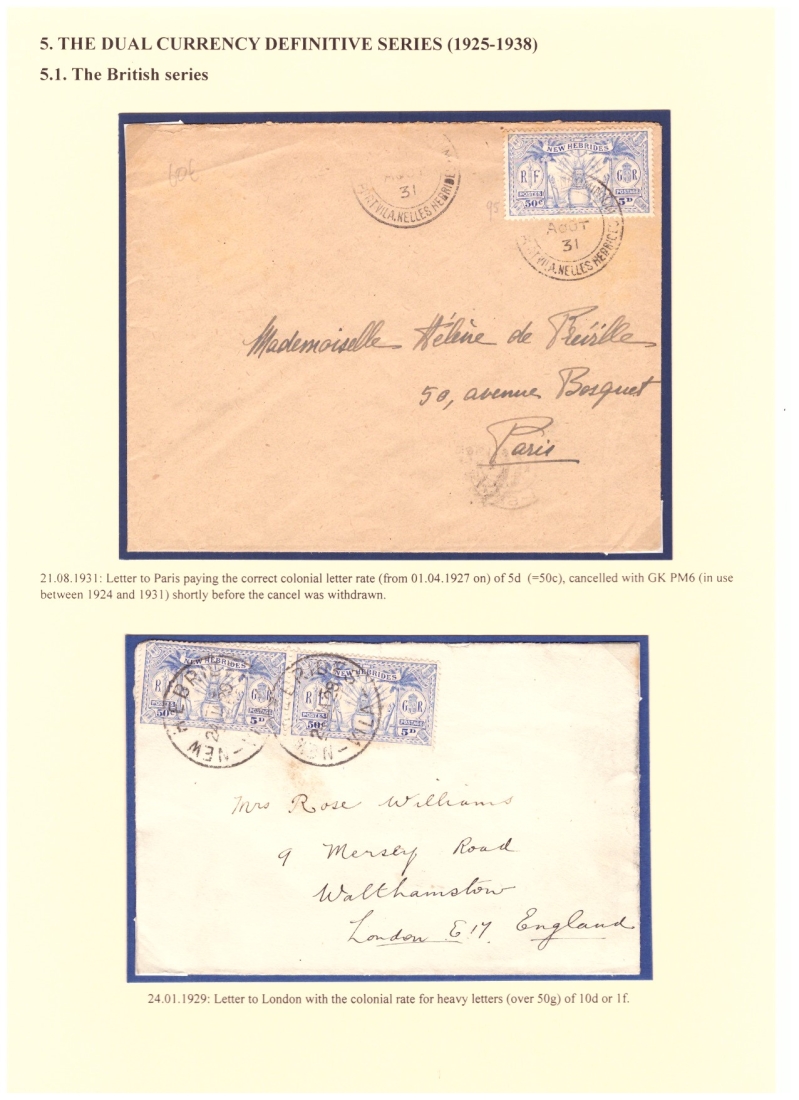 5. THE DUAL CURRENCY DEFINITIVE SERIES (1925-1938)
5.1. The British series
60€
AOUT
31
PORT-VILA.NELLES HEBRIDES
NEW HEBRIDES
R F
G R
POSTES
POSTAGE
50c
5D
95
AOUT
31
PORT-VILA.NELLES HEBRIDES
Mademoiselle Hélène de Préville
50, avenue Bosquet
Paris
21.08.1931: Letter to Paris paying the correct colonial letter rate (from 01.04.1927 on) of 5d (=50c), cancelled with GK PM6 (in use
between 1924 and 1931) shortly before the cancel was withdrawn.
NEW HEBRIDES
R
G R
POSTES
POSTAGE
50c
5D
NEW HEBRIDES
R F
G R
POSTES
POSTAGE
50c
5D
Mrs Rose Williams
9 Mersey Road
Walthamstow
London E 17 England
24.01.1929: Letter to London with the colonial rate for heavy letters (over 50g) of 10d or 1f.